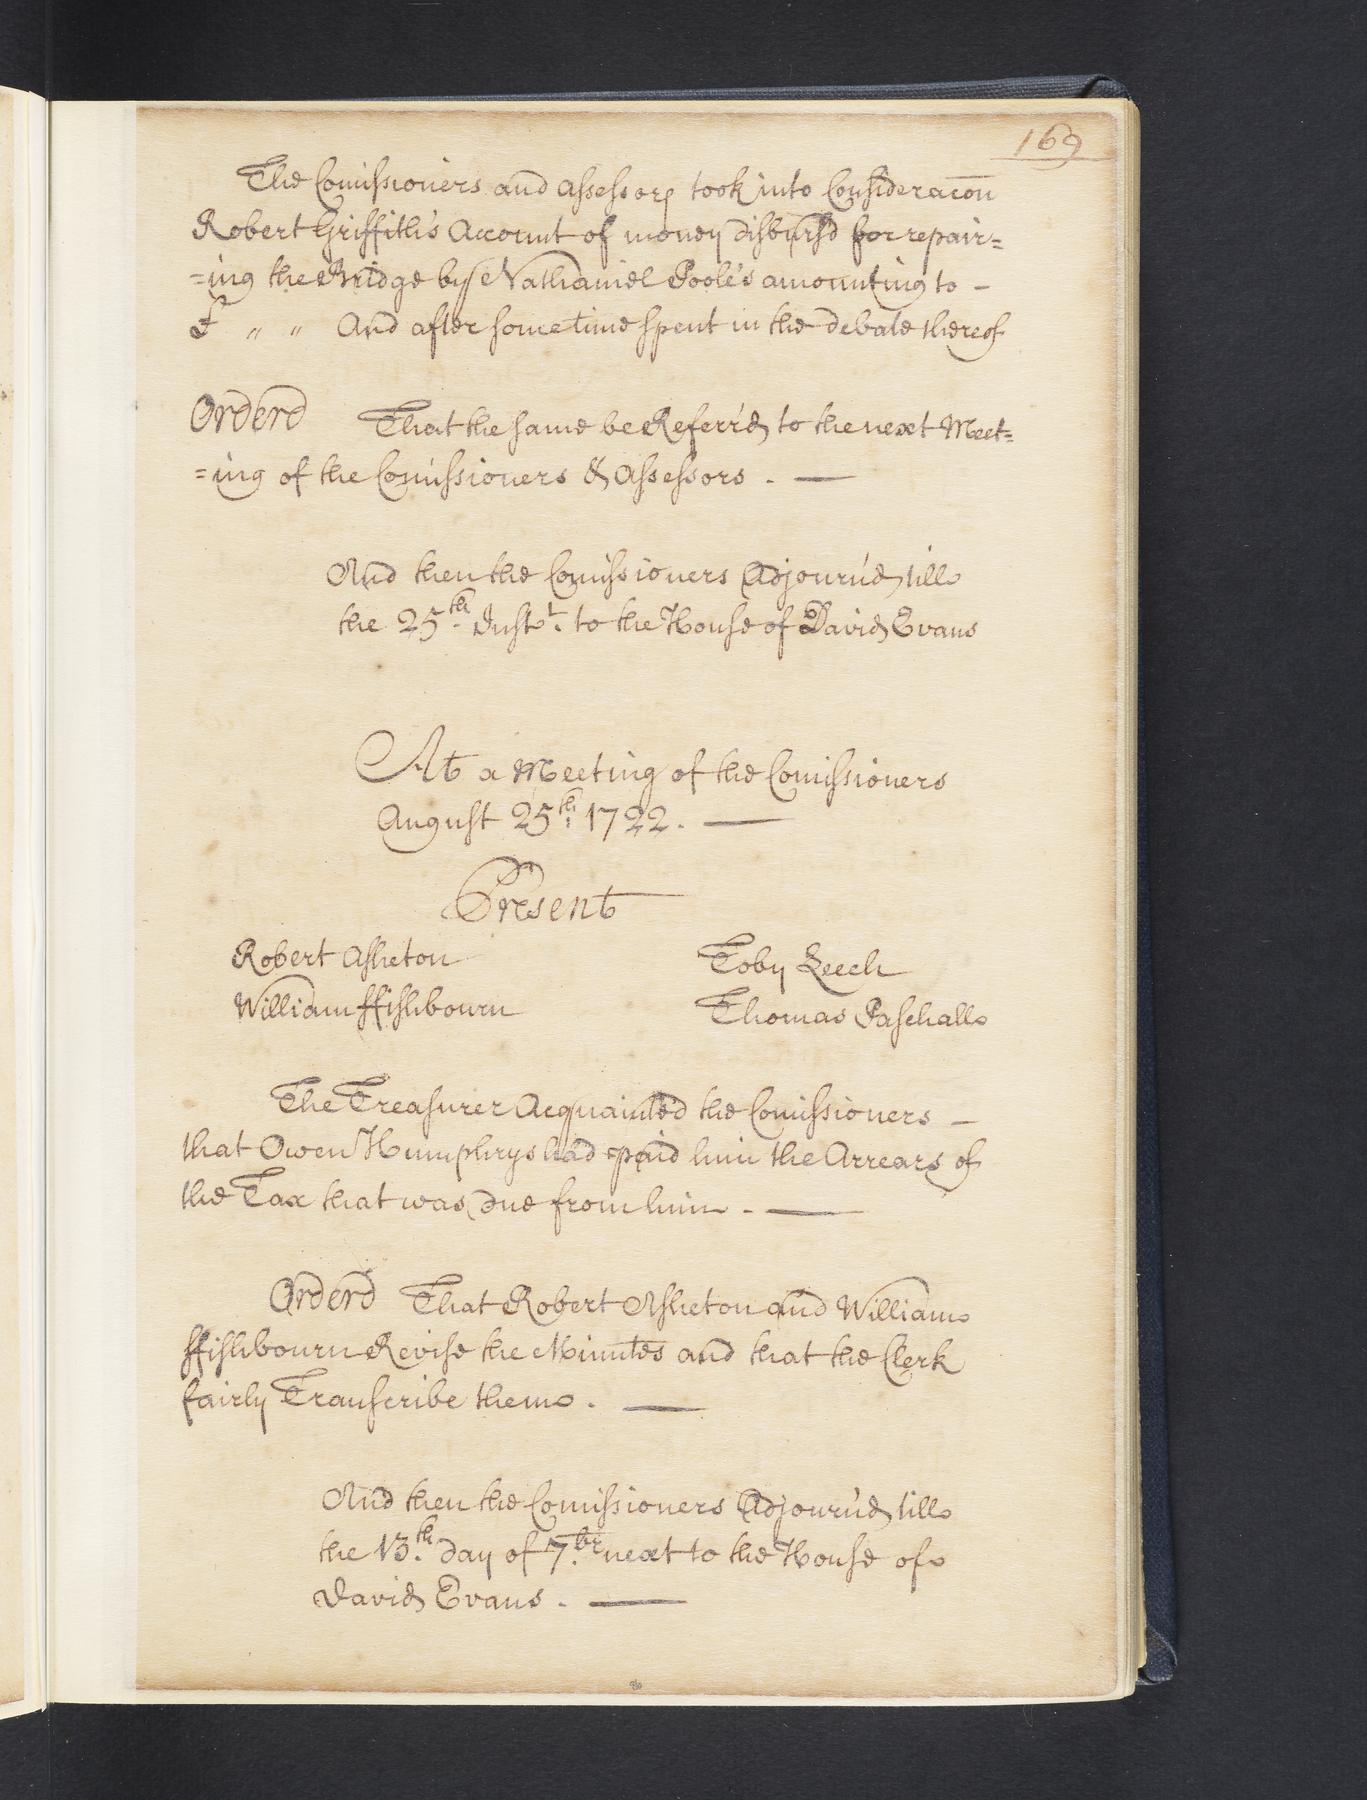 169
The Comissioners and Assessors took into Consideracon
Robert Griffith's Account of money disburs'd for repair=
=ing the Bridge by Nathaniel Poole's amounting to –
£ " " And after some time spent in the debate thereof
Orderd That the same be Referr'd to the next Meet=
=ing of the Comissioners & Assessors . —
And then the Comissioners Adjourn'd till
the 25th Inst. to the House of David Evans
At a Meeting of the Comissioners
August 25th 1722. —
Present
Robert Asheton Toby Leech
William ffishbourn Thomas Paschall
The Treasurer Acquainted the Comissioners –
that Owen Humphrys had paid him the Arrears of
the Tax that was due from him . —
Orderd That Robert Asheton and William
ffishbourn Revise the Minutes and that the Clerk
fairly Transcribe them . —
And then the Comissioners Adjourn'd till
the 13th day of 7br next to the House of
David Evans . —